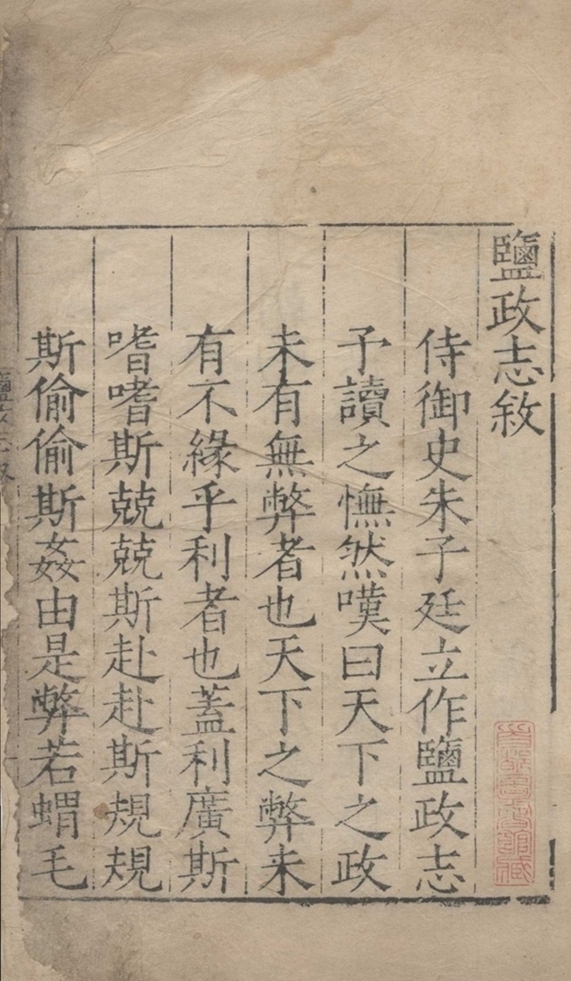 鹽政志敘
侍御史朱子廷立作鹽政志
予讀之憮然嘆曰天下之政
未有無弊者也天下之弊未
有不緣乎利者也蓋利廣斯
嗜嗜斯兢兢斯赴赴斯規規
斯偷偷斯姦由是弊若蝟毛